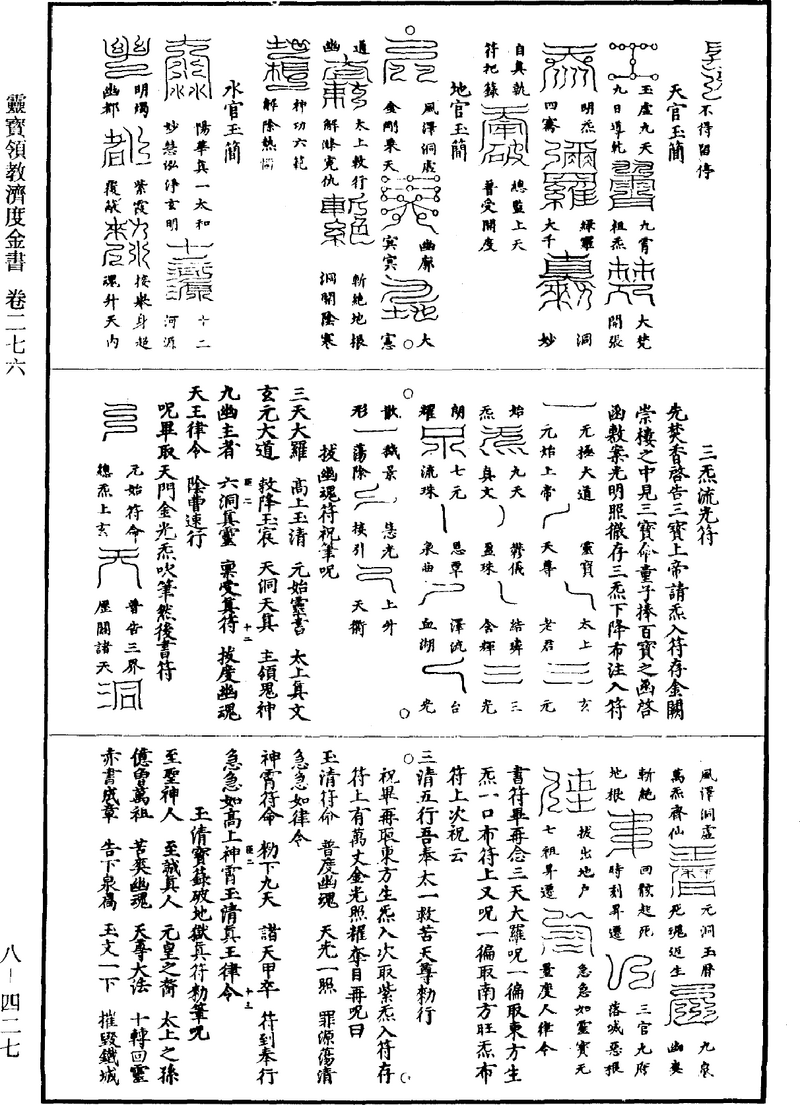 不得留停
天官玉簡
玉虛九天 九霄 大梵
九日導乾 祖炁 開張
明炁 綠羅 洞
四騫 大千 妙
自真執 總監上天
符把籙 普受開度
地官玉簡
風澤洞虛 幽廓 大
金剛乘天 寞寞 憲
道 太上敕行 斬絕地根
幽 解滌冤仇 洞開陰寒
神功六苑
解除熱惱
水官玉簡
陽華真一太和 十二
妙慧泓淨玄明 河源
明燭 紫霞 接舉身超
幽都 魂升天內
三炁流光符
先焚香啓告三寶上帝請炁入符存金闕
崇樓之中見三寶命童子捧百寶之函啓
函敷案光明照徹存三炁下降布注入符
元極大道 靈寶 太上 玄
元始上帝 天尊 老君 元
始 九天 鬱儀 結璘 三
炁 真文 盈珠 含輝 光
朗 七元 恩覃 澤流 台
耀 流珠 泉曲 血湖 光
散 穢景 慧光 上升
形 蕩除 接引 天衢
拔幽魂符祝筆呪
三天大羅 高上玉清 元始靈書 太上真文
玄元大道 救降玉哀 天洞天真 主領鬼神
九幽主者 六洞真靈 稟受真符 拔度幽魂
天王律令 陰曹速行
呪畢取天門金光炁吹筆然後書符
元始符命 普告三界
總炁上玄 歷關諸天
風澤洞虛 元洞玉曆 九泉
萬炁齊仙 死魂返生 幽夜
斬絕 回骸起死 三官九府
地根 時刻昇遷 落滅惡根
拔出地戶 急急如靈寶元
七祖昇遷 量度人律令
書符畢再念三天大羅呪一徧取東方生
炁一口布符上又呪一徧取南方旺炁布
符上次祝云
三清五行吾奉太一救苦天尊勑行
祝畢再取東方生炁入次取紫炁入符存
符上有萬丈金光照耀奪目再呪曰
玉清符命 普度幽魂 天光一照 罪源蕩清
急急如律令
神霄符命 勑下九天 諸天甲卒 符到奉行
急急如高上神霄玉清真王律令
玉清寶籙破地獄真符勑筆呪
至聖神人 至誠真人 元皇之裔 太上之孫
億曾萬祖 苦爽幽魂 天尊大法 十轉回靈
赤書成章 告下泉扃 玉文一下 摧毀鐵城
靈寶領教濟度金書 卷二七六
八－四二七